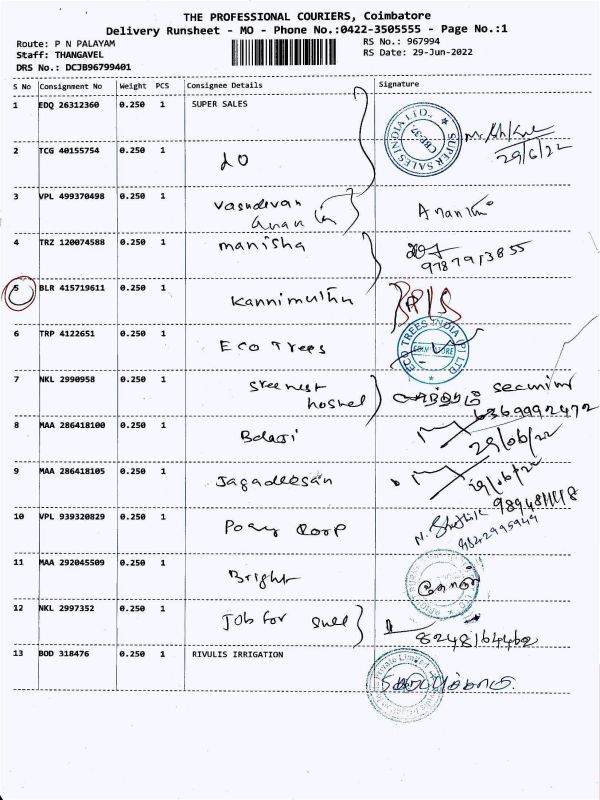 THE PROFESSIONAL COURIERS, Coimbatore
Delivery Runsheet - MO - Phone No.:0422-3505555 - Page No.:1
Route: P N PALAYAM RS No.: 967994
Staff: THANGAVEL RS Date: 29-Jun-2022
DRS No.: DCJB96799401
S No Consignment No Weight PCS Consignee Details Signature
1 EDQ 26312360 0.250 1 SUPER SALES
SUPER SALES INDIA LTD.,
CBE-37
29/6/22
2 TCG 40155754 0.250 1 LO
3 VPL 499370498 0.250 1 Vasudevan
4 TRZ 120074588 0.250 1 manisha
5 BLR 415719611 0.250 1 Kannimuthu
6 TRP 4122651 0.250 1 Eco Trees
ECO TREES INDIA (P) LTD
COIMBATORE
7 NKL 2990958 0.250 1 hostel
6369992472
8 MAA 286418100 0.250 1 Balaji 29/06/22
9 MAA 286418105 0.250 1 Jagadeesan 29/06/22
10 VPL 939320829 0.250 1
9842995949
11 MAA 292045509 0.250 1 Bright
12 NKL 2997352 0.250 1 Job for
13 BOD 318476 0.250 1 RIVULIS IRRIGATION
Private Limited